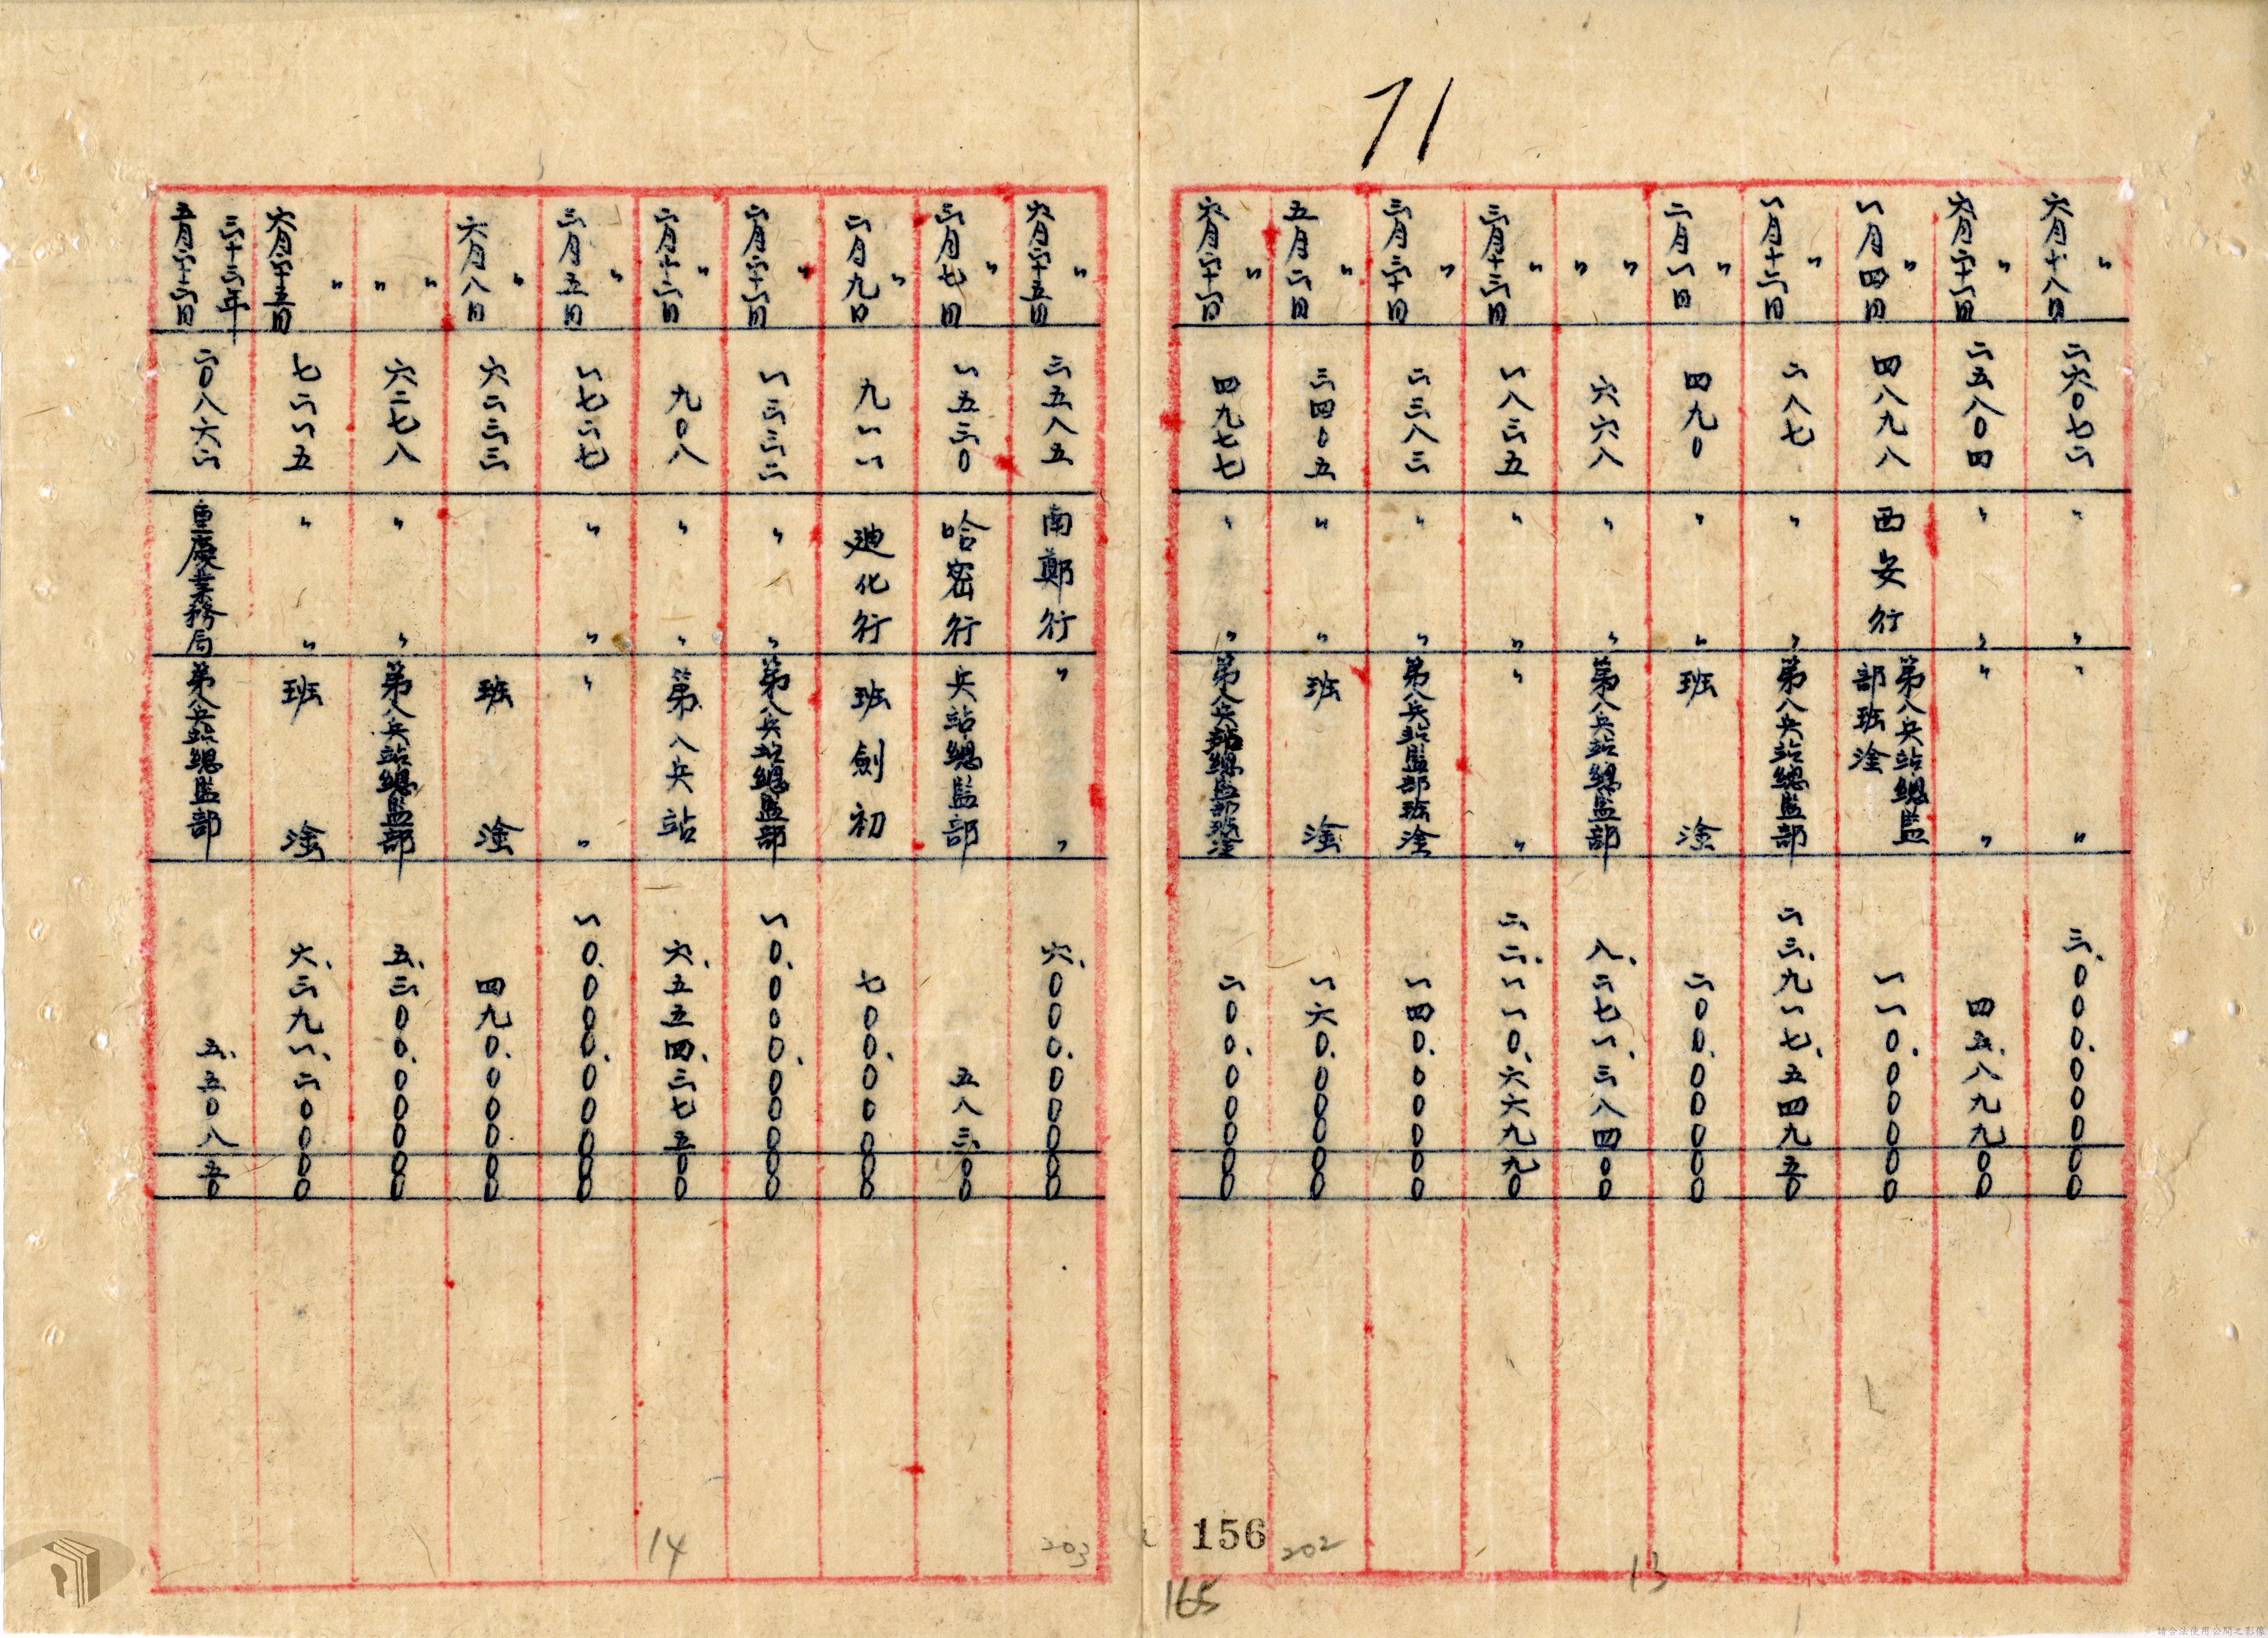 71
〃六月十八日 二六〇七二 〃〃 〃〃 三、〇〇〇、〇〇〇〇〇
〃六月二十一日 二五八〇四 〃〃 〃〃 四五、八九九〇〇
〃一月四日 四八九八 西安行 第八兵站總監部班淦 一一〇、〇〇〇〇〇
〃一月十二日 二八七 〃〃 第八兵站總監部 二三、九一七、五四九五〇
〃二月一日 四九〇 〃〃 班淦 二〇〇、〇〇〇〇〇
〃〃 六六八 〃〃 第八兵站總監部 八、二七一、三八四〇〇
〃三月十三日 一八三五 〃〃 〃〃 二二、一一〇、六六九九〇
〃三月三十日 二三八三 〃〃 第八兵站監部班淦 一四〇、〇〇〇〇〇
〃五月二日 三四〇五 〃〃 班淦 一六〇、〇〇〇〇〇
〃六月二十一日 四九七七 〃〃 第八兵站總監部班淦 二〇〇、〇〇〇〇〇
156
202
13
165
〃六月二十五日 三五八五 南鄭行 〃〃 六、〇〇〇、〇〇〇〇〇
〃三月七日 一五三〇 哈密行 兵站總監部 五八三、〇〇
〃二月九日 九一一 迪化行 班劍初 七〇〇、〇〇〇〇〇
〃二月二十一日 一三三二 〃〃 第八兵站總監部 一〇、〇〇〇、〇〇〇〇〇
〃二月十二日 九〇八 〃〃 第八兵站 六、五五四、三七五〇〇
〃三月五日 一七二七 〃〃 〃〃 一〇、〇〇〇、〇〇〇〇〇
〃六月八日 六二三三 班淦 四九〇、〇〇〇〇〇
〃〃 六二七八 〃〃 第八兵站總監部 五、三〇〇、〇〇〇〇〇
〃六月二十五日 七二一五 〃〃 班淦 六、三九一、二〇〇〇〇
三十三年五月二十六日 二〇八六二 重慶業務局 第八兵站總監部 五、五〇八五〇
14
203
請合法使用公開之影像